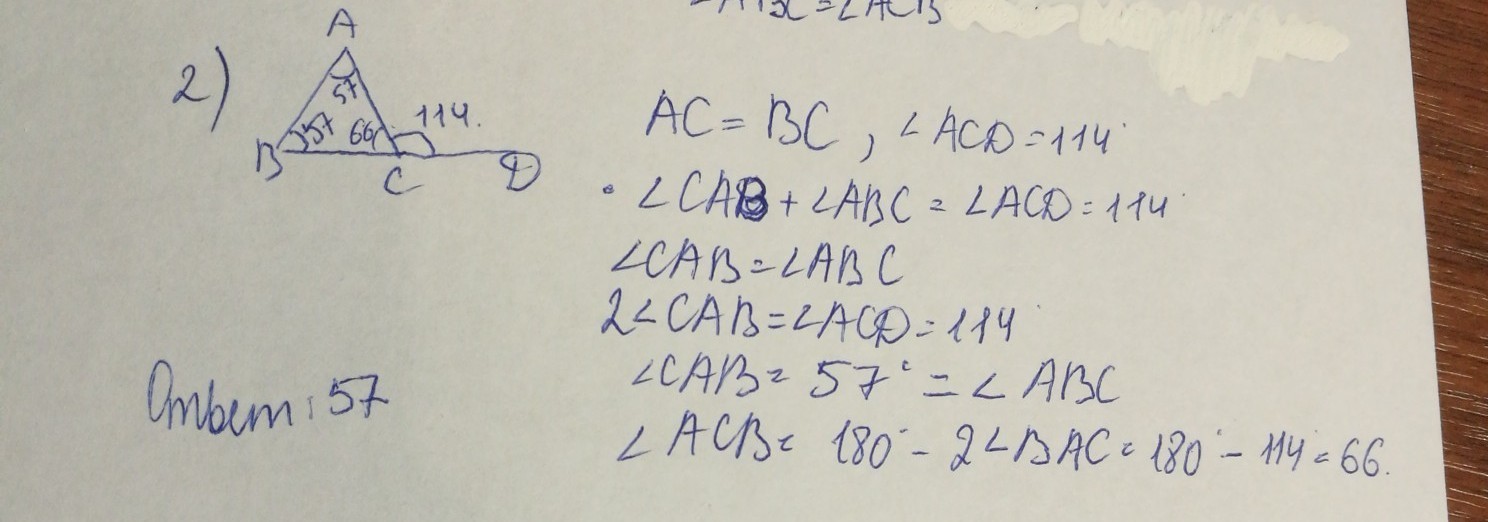 ∠ABC = ∠ACB
2)
A
57
57 66 114°
B C D
AC = BC, ∠ACD = 114°
• ∠CAB + ∠ABC = ∠ACD = 114°
∠CAB = ∠ABC
2∠CAB = ∠ACD = 114°
∠CAB = 57° = ∠ABC
∠ACB = 180° - 2∠BAC = 180° - 114° = 66.
Ответ: 57